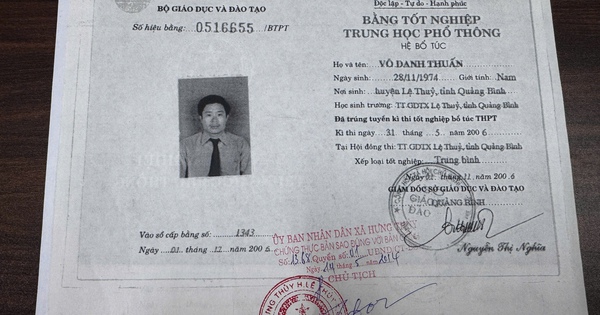 BỘ GIÁO DỤC VÀ ĐÀO TẠO
Số hiệu bằng: 0516655/BTPT
Độc lập - Tự do - Hạnh phúc
BẰNG TỐT NGHIỆP
TRUNG HỌC PHỔ THÔNG
HỆ BỔ TÚC
Họ và tên: VÕ DANH THUẤN
Ngày sinh: 28/11/1974 Giới tính: Nam
Nơi sinh: huyện Lệ Thuỷ, tỉnh Quảng Bình
Học sinh trường: TT GDTX Lệ Thuỷ, tỉnh Quảng Bình
Đã trúng tuyển kì thi tốt nghiệp bổ túc THPT
Kì thi ngày 31 tháng 5 năm 2006
Tại Hội đồng thi: TT GDTX Lệ Thuỷ, tỉnh Quảng Bình
Xếp loại tốt nghiệp: Trung bình
Ngày 01 tháng 11 năm 2006
GIÁM ĐỐC SỞ GIÁO DỤC VÀ ĐÀO TẠO
QUẢNG BÌNH
GIÁO DỤC
ĐÀO
Nguyễn Thị Nghĩa
Vào sổ cấp bằng số: 1343
Ngày 01 tháng 12 năm 2006
ỦY BAN NHÂN DÂN XÃ HƯNG
CHỨNG THỰC BẢN SAO ĐÚNG VỚI BẢN
Số: 1368 Quyển số: 01
Ngày 14 tháng 5 năm 2014
CHỦ TỊCH
THỦY H.LỆ THỦY